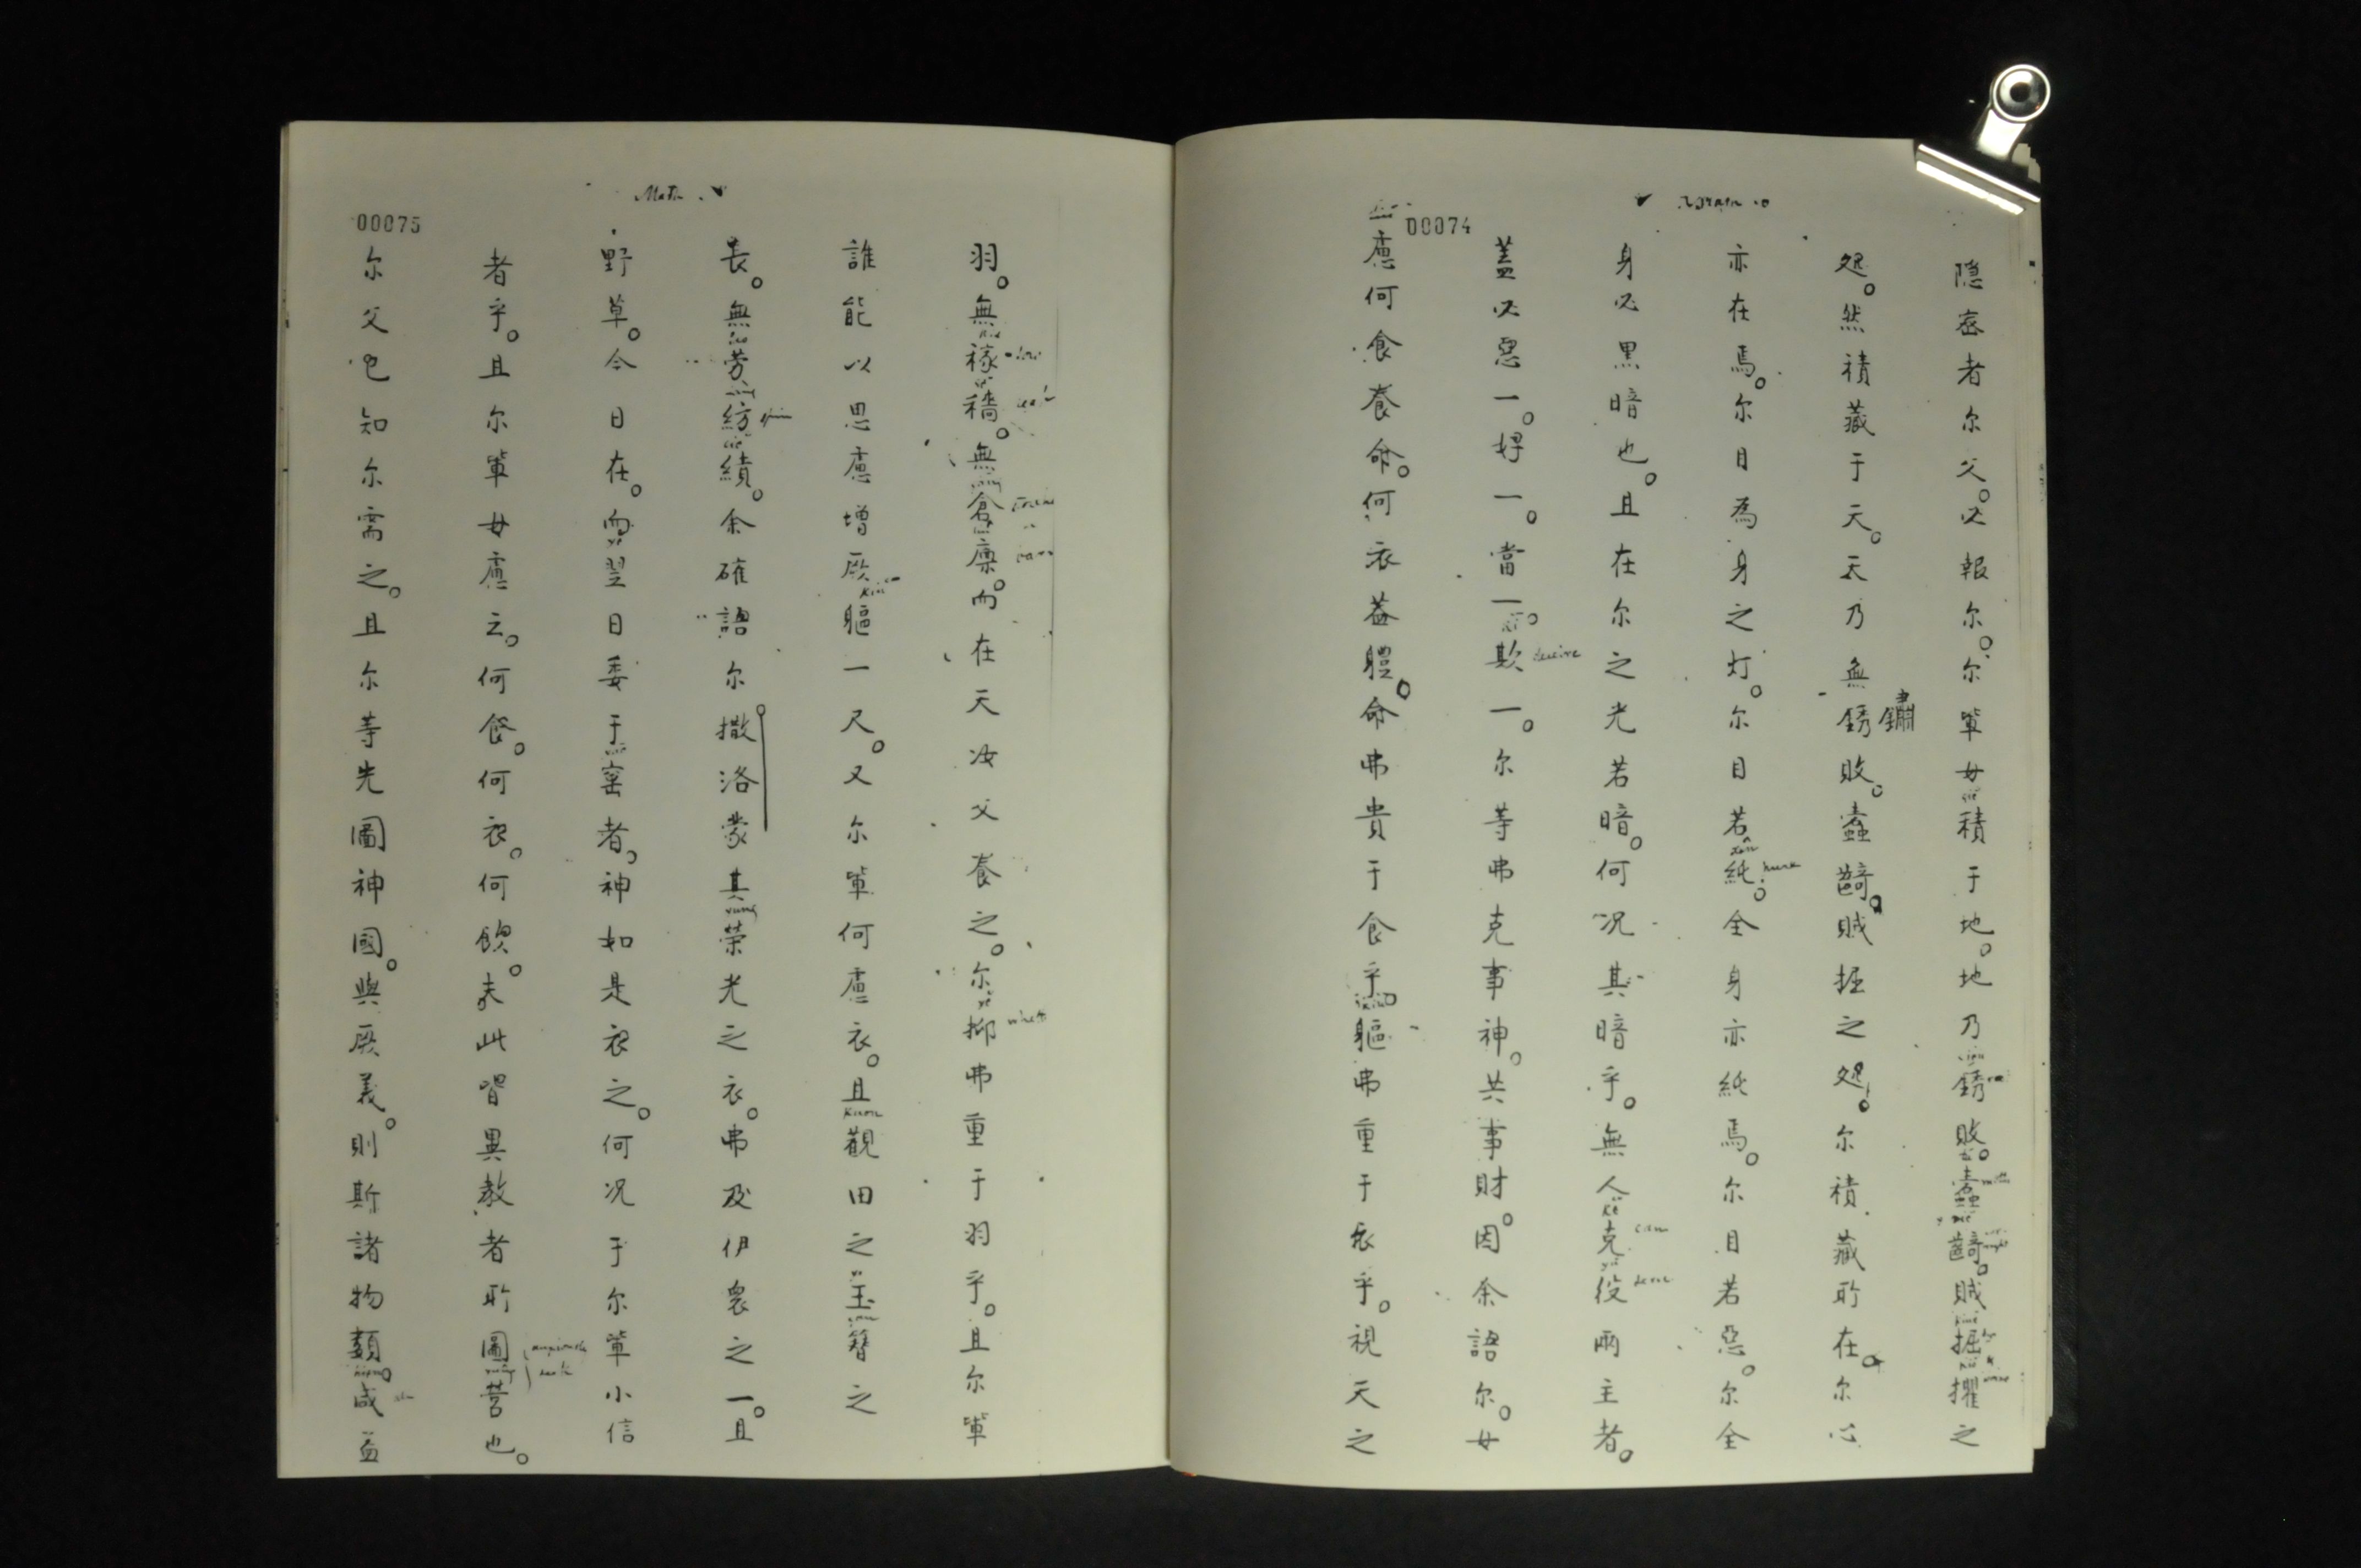 00074
隐宻者尔父。必報尔。尔軰毋積于地。地乃銹敗。蠧齮。賊掘擢之
処。然積藏于天。天乃無銹敗。蠧齮。賊掘之処。尔積藏所在。尔心
鏽
亦在焉。尔目為身之灯。尔目若純。全身亦純焉。尔目若惡。尔全
身必黑暗也。且在尔之光若暗。何况其暗乎。無人克役兩主者。
can
蓋必惡一。好一。當一。欺一。尔等弗克事神。共事財。因余語尔。毋
慮何食養命。何衣葢軆。命弗貴于食乎。軀弗重于衣乎。視天之
Math.
00075
羽。無稼穡。無倉廩。而在天汝父養之。尔抑弗重于羽乎。且尔軰
誰能以思慮增厥軀一尺。又尔軰何慮衣。且觀田之玉簪之
長。無劳紡績。余確語尔撒洛蒙其荣光之衣。弗及伊衆之一。且
spin
野草。今日在。而翌日委于窰者。神如是衣之。何况于尔軰小信
者乎。且尔軰毋慮云。何食。何衣。何飲。夫此皆異教者所圖营也。
尔父皀知尔需之。且尔等先圖神國。與厥義。則斯諸物類。咸益